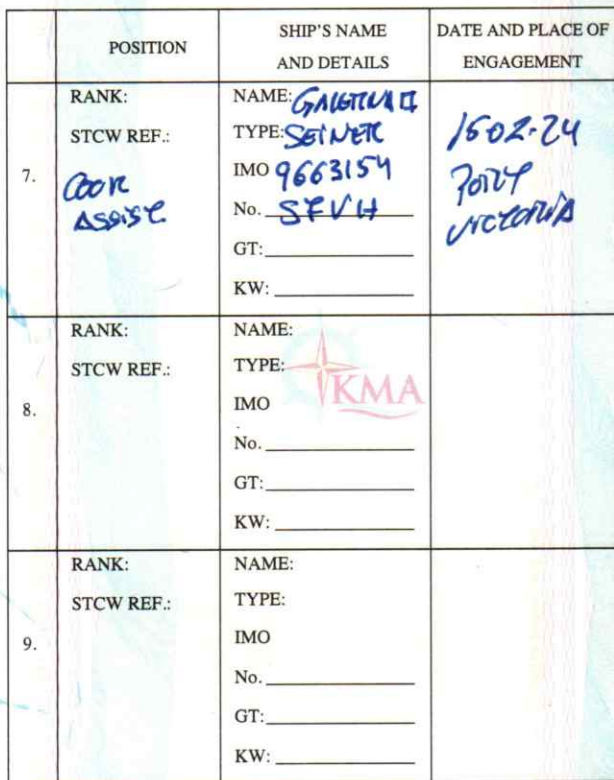 POSITION
SHIP'S NAME
AND DETAILS
DATE AND PLACE OF
ENGAGEMENT
7.
RANK:
STCW REF.:
COOK
ASSIST.
NAME: GALERNA II
TYPE: SEINER
IMO 9663154
No. SFVH
GT:
KW:
1502-24
PORT
VICTORIA
8.
RANK:
STCW REF.:
NAME:
TYPE:
KMA
IMO
No.
GT:
KW:
9.
RANK:
STCW REF.:
NAME:
TYPE:
IMO
No.
GT:
KW: